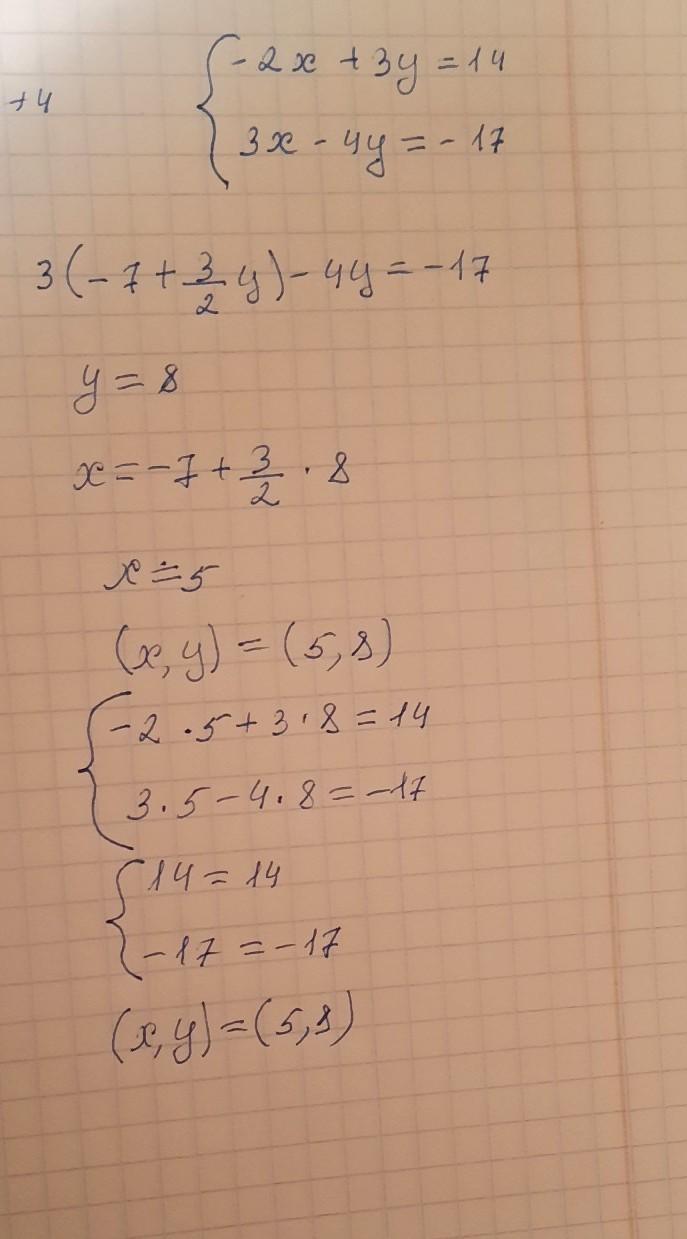 -2x + 3y = 14
+4
3x - 4y = - 17
3(-7 + 3/2 y) - 4y = -17
y = 8
x = -7 + 3/2 · 8
x = 5
(x, y) = (5, 8)
-2 · 5 + 3 · 8 = 14
3 · 5 - 4 · 8 = -17
14 = 14
-17 = -17
(x, y) = (5, 8)